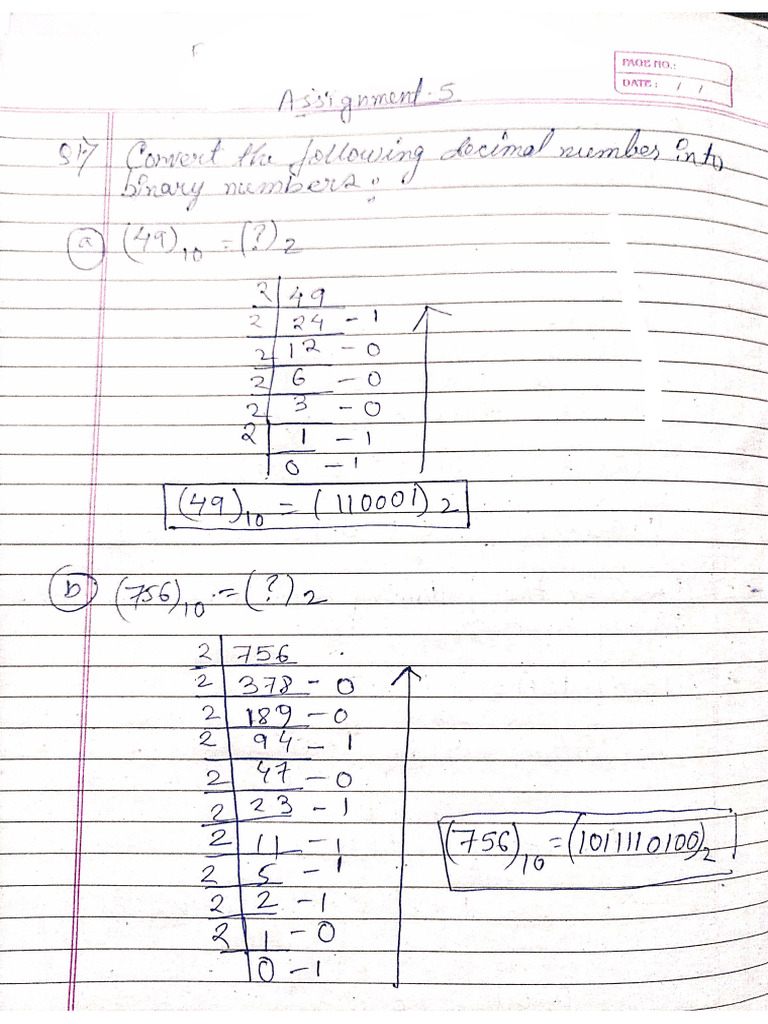 PAGE NO.:
DATE: / /
Assignment-5
Convert the following decimal number into
binary numbers:
(a) (49)10 = (?)2
2 | 49
2 | 24 - 1
2 | 12 - 0
2 | 6 - 0
2 | 3 - 0
2 | 1 - 1
0 - 1
(49)10 = (110001)2
(b) (756)10 = (?)2
2 | 756
2 | 378 - 0
2 | 189 - 0
2 | 94 - 1
2 | 47 - 0
2 | 23 - 1
2 | 11 - 1
2 | 5 - 1
2 | 2 - 1
2 | 1 - 0
0 - 1
(756)10 = (1011110100)2